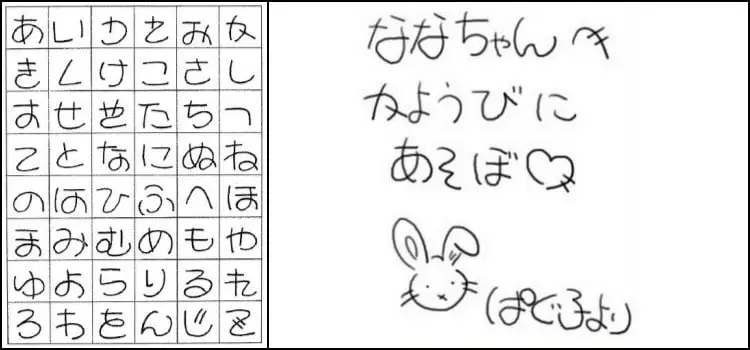 あいうえおか
きくけこさし
すせそたちつ
てとなにぬね
のはひふへほ
まみむめもや
ゆよらりるれ
ろわをんじ
ななちゃんへ
かようびに
あそぼ♡
(ぱどっ子より)